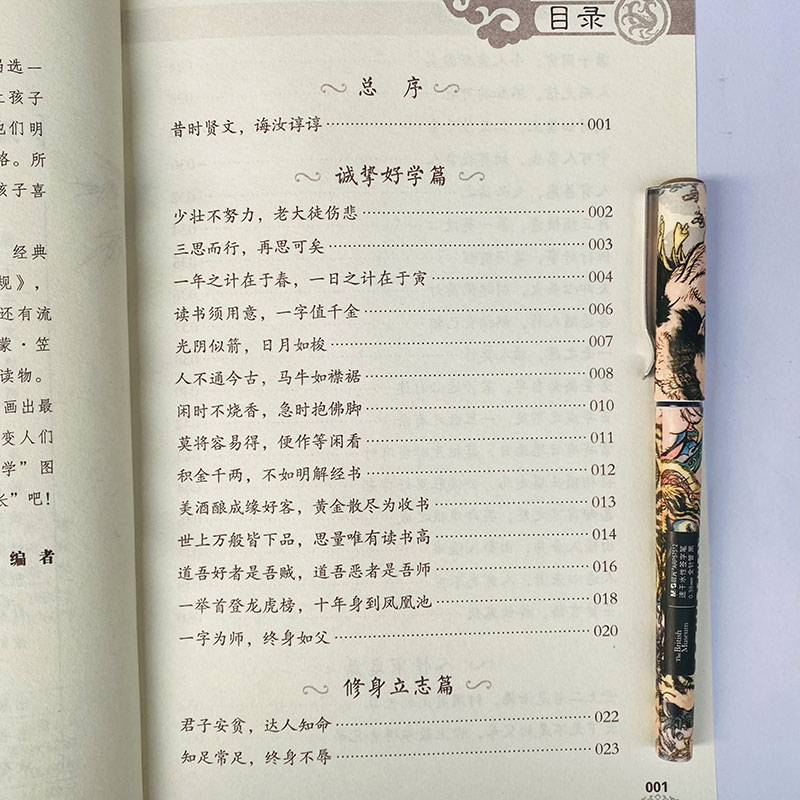 当选一
上孩子
他们明
格。所
孩子喜
经典
规》,
还有流
蒙·笠
读物。
画出最
变人们
学”图
长”吧!
编者
目录
总 序
昔时贤文,诲汝谆谆……001
诚挚好学篇
少壮不努力,老大徒伤悲……002
三思而行,再思可矣……003
一年之计在于春,一日之计在于寅……004
读书须用意,一字值千金……006
光阴似箭,日月如梭……007
人不通今古,马牛如襟裾……008
闲时不烧香,急时抱佛脚……010
莫将容易得,便作等闲看……011
积金千两,不如明解经书……012
美酒酿成缘好客,黄金散尽为收书……013
世上万般皆下品,思量唯有读书高……014
道吾好者是吾贼,道吾恶者是吾师……016
一举首登龙虎榜,十年身到凤凰池……018
一字为师,终身如父……020
修身立志篇
君子安贫,达人知命……022
知足常足,终身不辱……023
001
M&G
速干水性签字笔
0.38mm 全针管 黑
The British
Museum